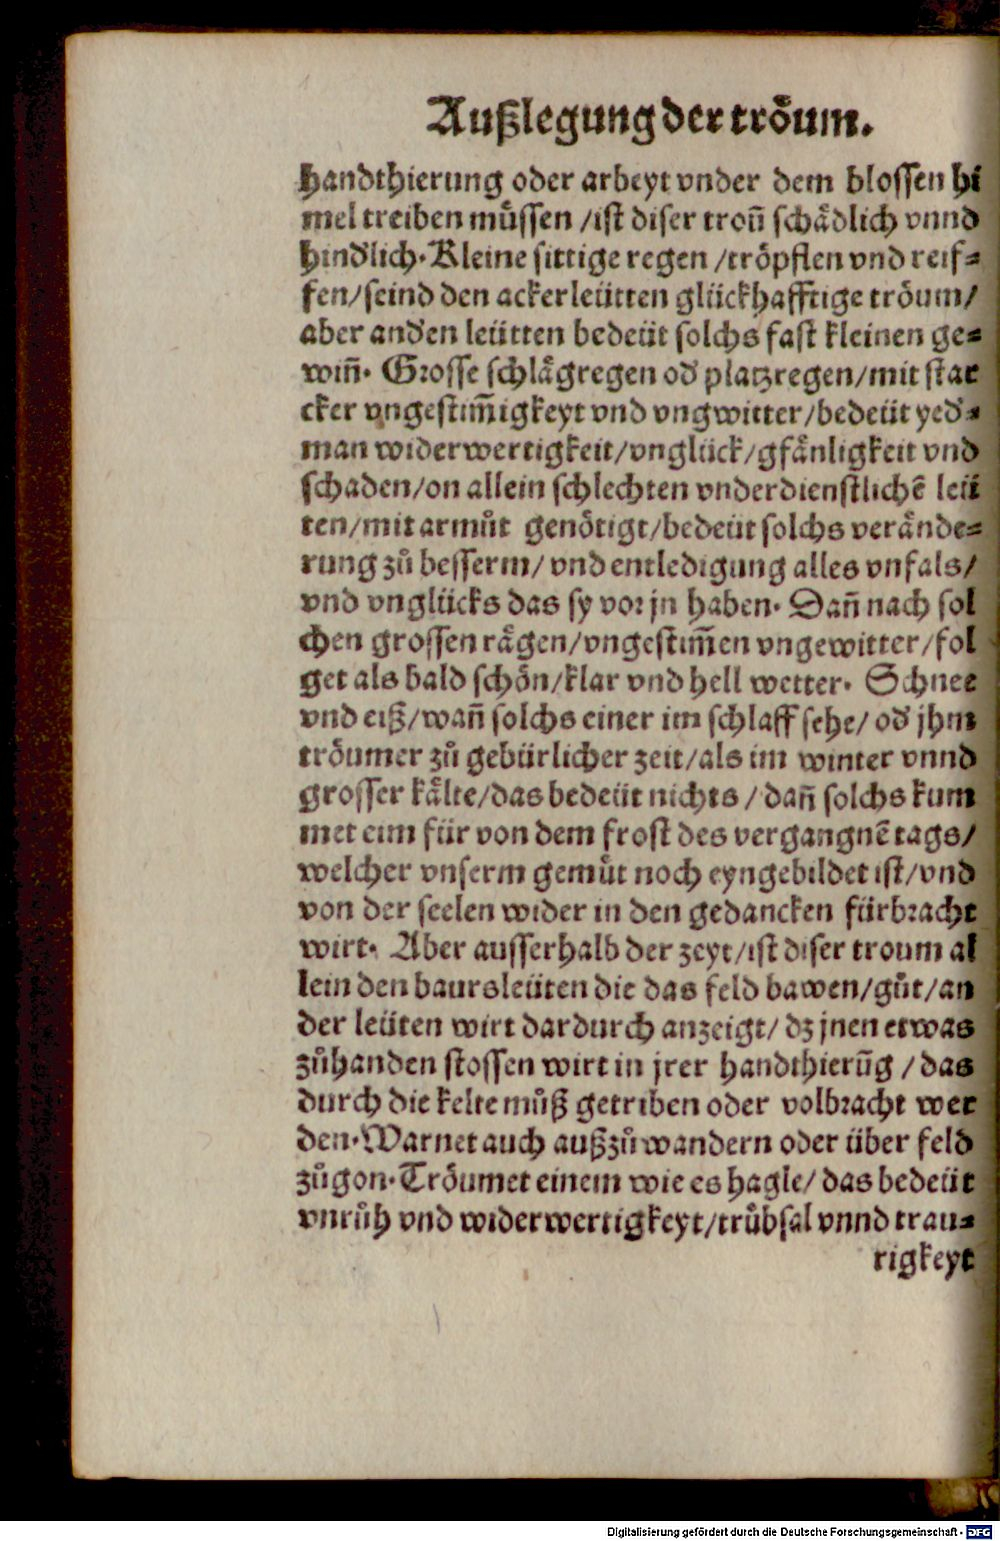 Außlegung der trőum.
handthierung oder arbeyt vnder dem blossen hī
mel treiben müssen /ist diser troum̄ schaͤdlich vnnd
hind'lich. Kleine sittige regen /troͤpflen vnd reif⸗
fen/seind den ackerleütten glückhafftige troͤum/
aber and'en leütten bedeüt solchs fast kleinen ge⸗
win̄. Grosse schlaͤgregen od' platzregen/mit star
cker vngestim̄igkeyt vnd vngwitter/bedeüt yed'⸗
man widerwertigkeit/vnglück/gfaͤnligkeit vnd
schaden/on allein schlechten vnderdienstlichē leü
ten/mit armůt genoͤtigt/bedeüt solchs veraͤnde⸗
rung zů besserm/ vnd entledigung alles vnfals/
vnd vnglücks das sy vor jn haben. Dan̄ nach sol
chen grossen raͤgen/vngestim̄en vngewitter/fol
get als bald schoͤn/klar vnd hell wetter. Schnee
vnd eiß/wan̄ solchs einer im schlaff sehe/ od' jhm
troͤumet zů gebürlicher zeit/als im winter vnnd
grosser kaͤlte/das bedeüt nichts / dan̄ solchs kum
met eim für von dem frost des vergangnē tags/
welcher vnserm gemuͤt noch eyngebildet ist/vnd
von der seelen wider in den gedancken fürbracht
wirt. Aber ausserhalb der zeyt/ist diser troum al
lein den baursleüten die das feld bawen/gůt/an
der leüten wirt dardurch anzeigt/ dz jnen etwas
zůhanden stossen wirt in jrer handthierūg / das
durch die kelte můß getriben oder volbracht wer
den. Warnet auch außzůwandern oder über feld
zůgon. Troͤumet einem wie es hagle/ das bedeüt
vnrůh vnd widerwertigkeyt/truͤbsal vnnd trau⸗
rigkeyt
Digitalisierung gefördert durch die Deutsche Forschungsgemeinschaft - DFG